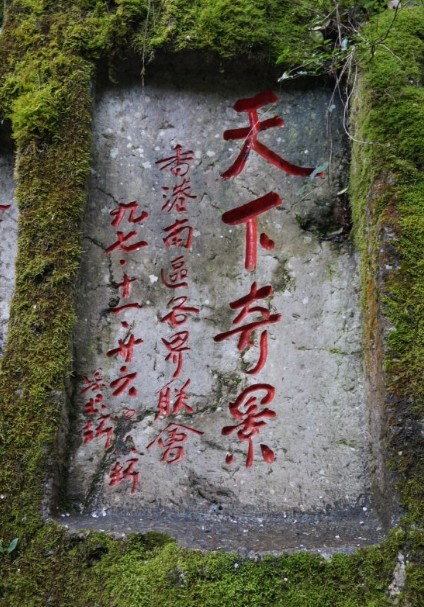 天下奇景
香港南區各界聯會
九七·十一·廿六